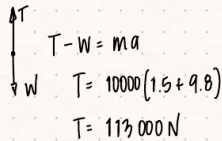 T
T-W = ma
W
T = 10000(1.5+9.8)
T = 113 000 N